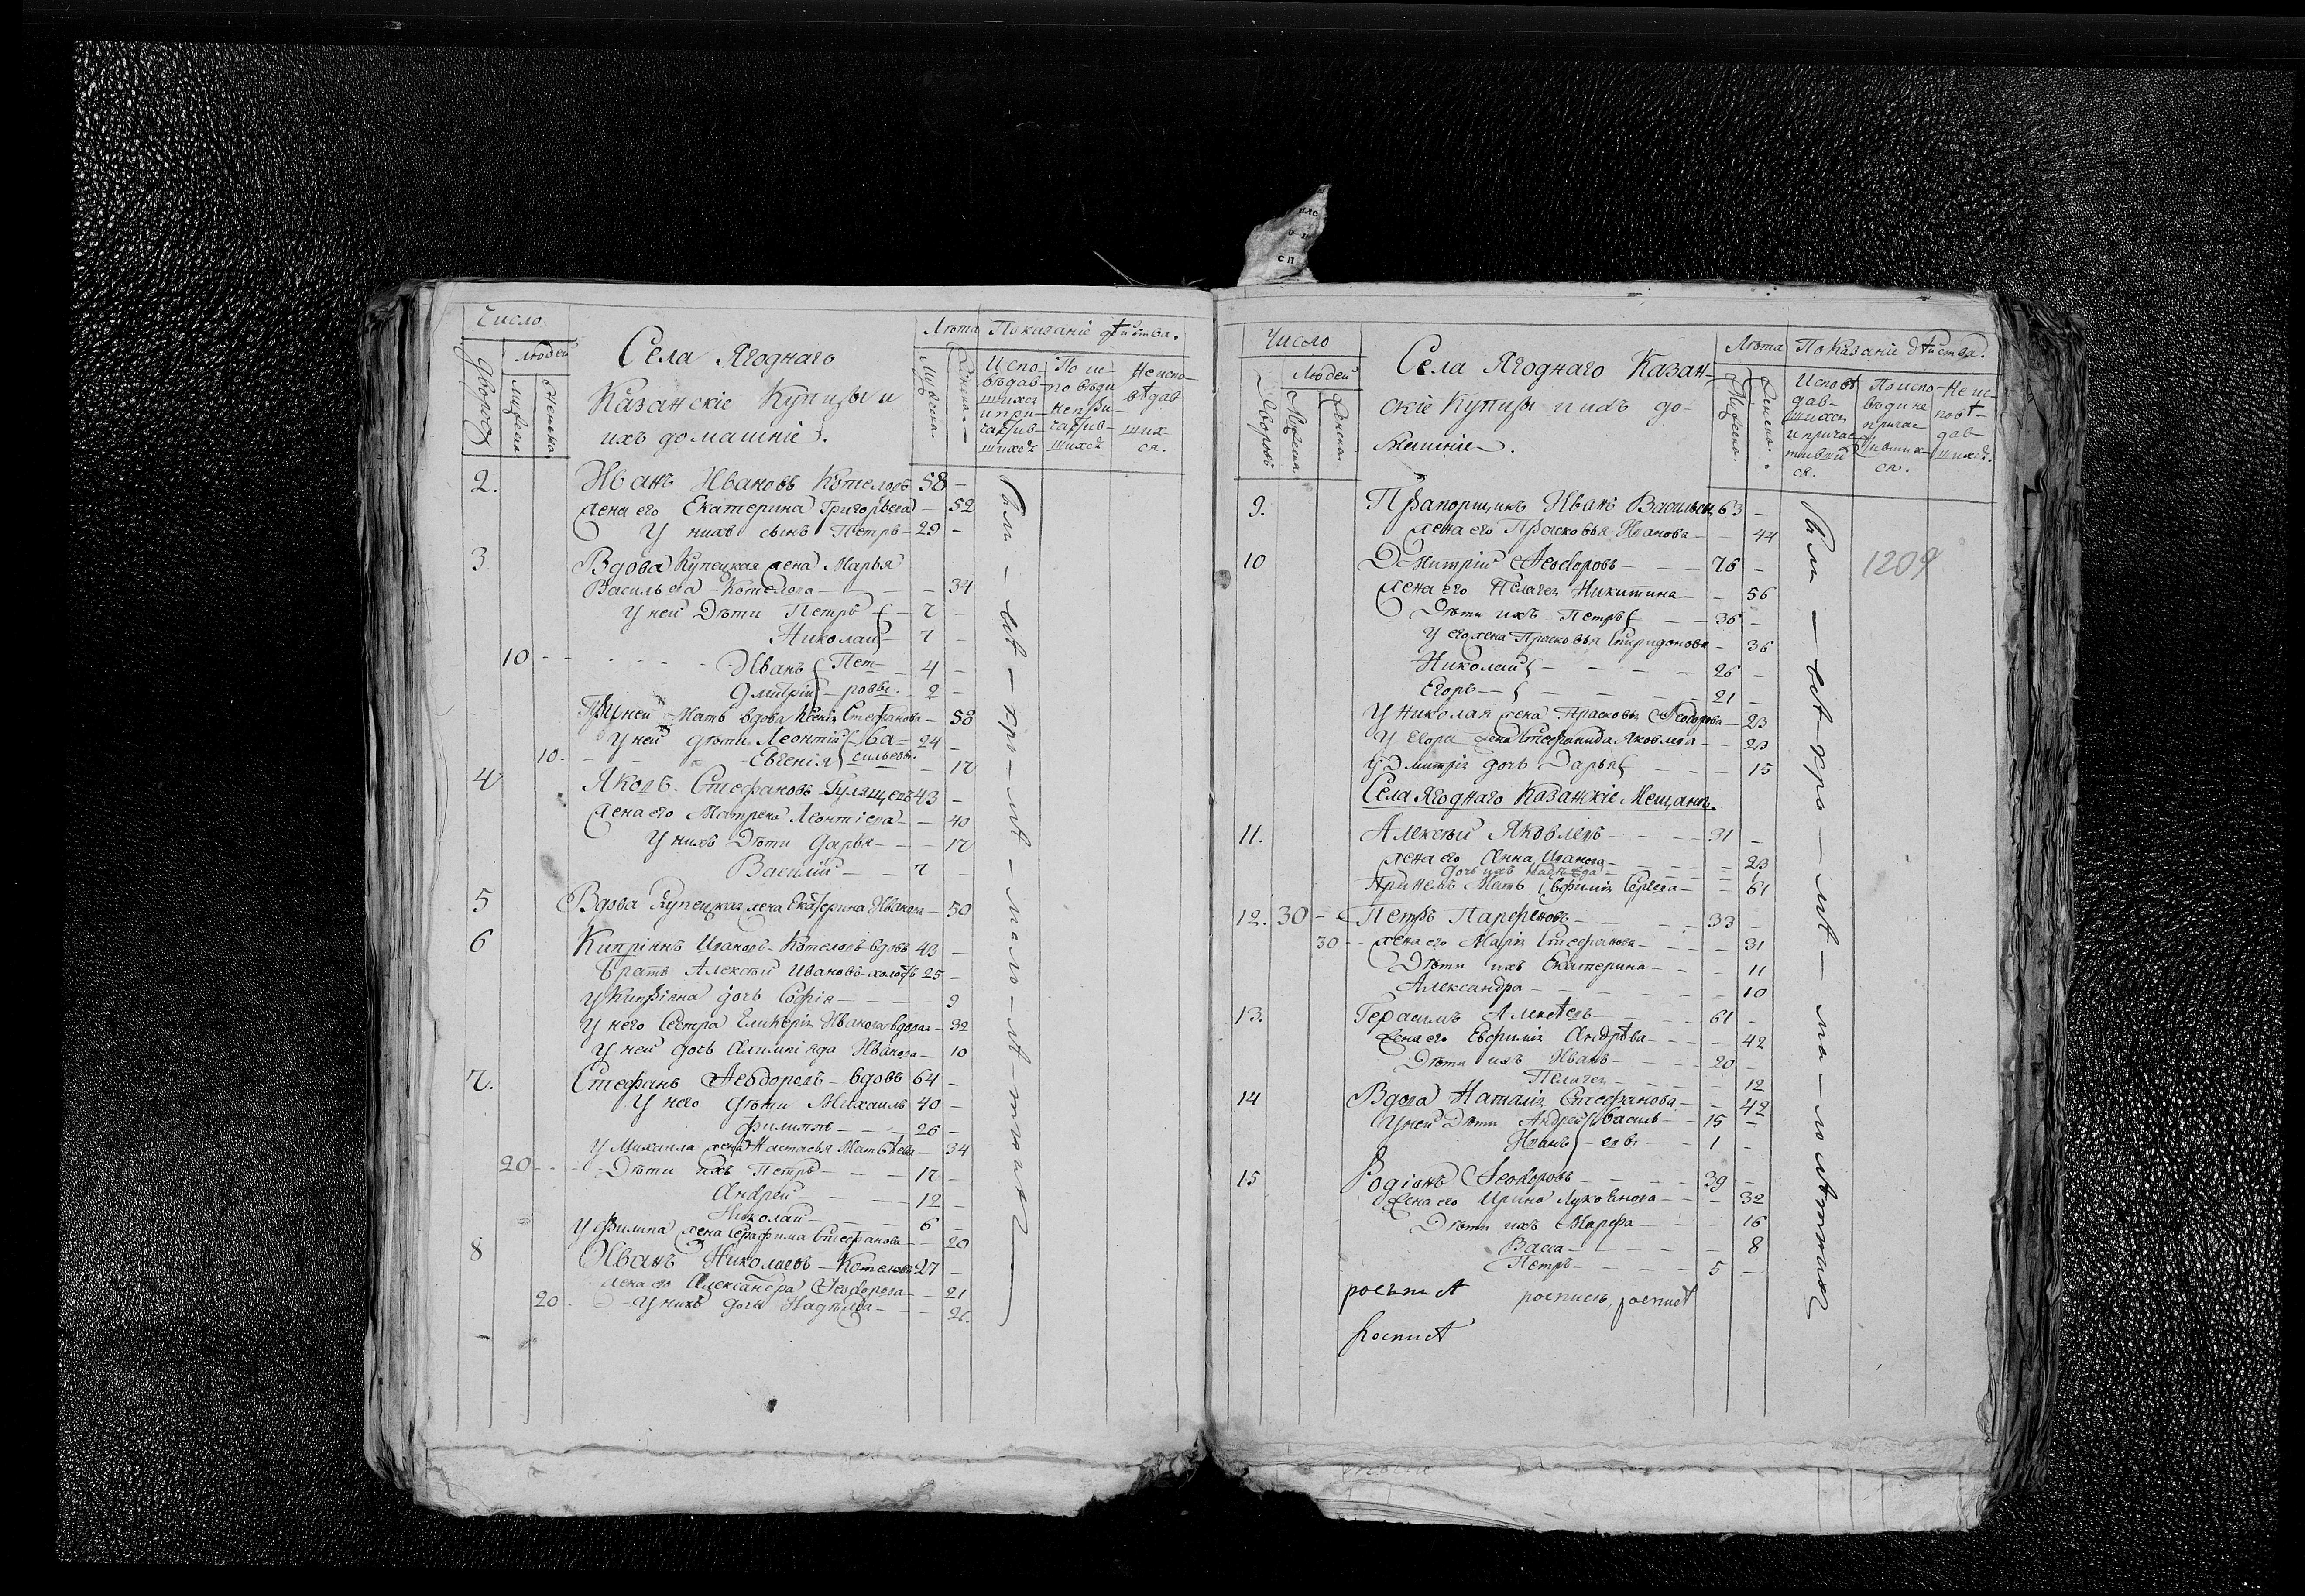 пле
о п
сп
Число. Лѣта Показаніе дѣйства.
Дворовъ Людей
Мужеска Женска
Села Ягоднаго
Казанскіе Купцы и
ихъ домашніе.
Мужеска. Женска.
Испо- По ис- Не испо-
вѣдав- повѣди вѣдав-
шихся не при- ших-
и при- чащив- ся.
чащив- шихся
шихся
2. Иванъ Ивановъ Котеловъ 58 -
Жена его Екатерина Григорьева - 52
У нихъ сынъ Петръ - 29 -
3 Вдова Купецкая жена Марья
Васильева - Котелова - - - 34
У ней Дѣти Петръ - 7 -
Николай - 7 -
10 - - - - Иванъ Пет- - 4 -
Дмитрій - ровы. - 2 -
При ней Мать вдова Ксенія Стефанова - 58
У ней дѣти Леонтій Ва- 24 -
10. - - - Евгенія сильевы. - 17
4 Яковъ Стефановъ 43 -
Жена его Матрена Леонтіева - - 40
У нихъ Дѣти Дарья - - - 17
Василій - - 7 -
5 Вдова Купецкая жена Екатерина Иванова - 50
6 Кипріянъ Ивановъ - Котеловъ вдовъ 43 -
Братъ Алексѣй Ивановъ - холостъ 25 -
У Кипріяна дочь Софія - - - - 9
У него Сестра Гликерія Иванова вдова - 32
У ней дочь Алимпіяда Иванова - 10
7. Стефанъ Ѳеодоровъ - вдовъ 64 -
У него Дѣти Михаилъ 40 -
Филиппъ - - - 26 -
У Михаила жена Настасья Матвѣева - 34
20 - - - Дѣти ихъ Петръ - - - 17 -
Андрей - - - 12 -
Николай - - - 6 -
У Филипа жена Серафима Стефанова - - 20
8 Иванъ Николаевъ - Котеловъ 27 -
Жена его Александра Ѳеодорова - - 21
20 - У нихъ дочь Надежда - - -
Были - всѣ - кро - мѣ - мало - лѣ - тнихъ
Число Лѣта Показаніе дѣйства.
Дворовъ Людей
Мужеска Женска.
Села Ягоднаго Казан-
скіе Купцы и ихъ до-
машніе.
Мужеска. Женска.
Исповѣ- По испо- Не ис-
дав- вѣди не повѣ-
шихся причас- дав-
и причас- тивших- шихся.
тивши ся.
ся.
9. Прапорщикъ Иванъ Васильевъ 63 -
Жена его Прасковья Иванова - - 44
10 Дмитрій Ѳеодоровъ - - - 76 -
Жена его Пелагея Никитина - - 56
Дѣти ихъ Петръ - - 36 -
У его жена Прасковья Спиридонова - 36
Николай - - - - 26 -
Егоръ - - - - - 21 -
У Николая жена Прасковья Ѳеодорова - 23
У Егора жена Стефанида Яковлева - - 23
У Дмитрія дочь Дарья - - - 15
1209
Села Ягоднаго Казанскіе Мещане.
11. Алексѣй Яковлевъ - - - - 31 -
Жена его Анна Иванова - - - - 23
Дочь ихъ Надежда - - - - 1
При немъ Мать Евфимія Сергеева - - 61
12. 30 - - Петръ Парфеновъ - - - - 33 -
30 - - Жена его Марія Стефанова - - - - 31
Дѣти ихъ Екатерина - - - 11
Александра - - - - - 10
13. Герасимъ Алексѣевъ - - - - 61 -
Жена его Евфимія Андрѣева - - - - 42
Дѣти ихъ Иванъ - - - 20 -
Пелагея - - - - 12
14 Вдова Наталія Стефанова - - 42
У ней Дѣти Андрей Василь- - 15 -
Иванъ - евы - - 1 -
15 Родіонъ Ѳеодоровъ - - - - 39 -
Жена его Ирина Лукоянова - - - 32
Дѣти ихъ Марфа - - - 16
Васса - - - - - 8
Петръ - - - - 5 -
Были - всѣ - кро - мѣ - ма - лолѣтнихъ
роспись роспись, роспись
Роспись